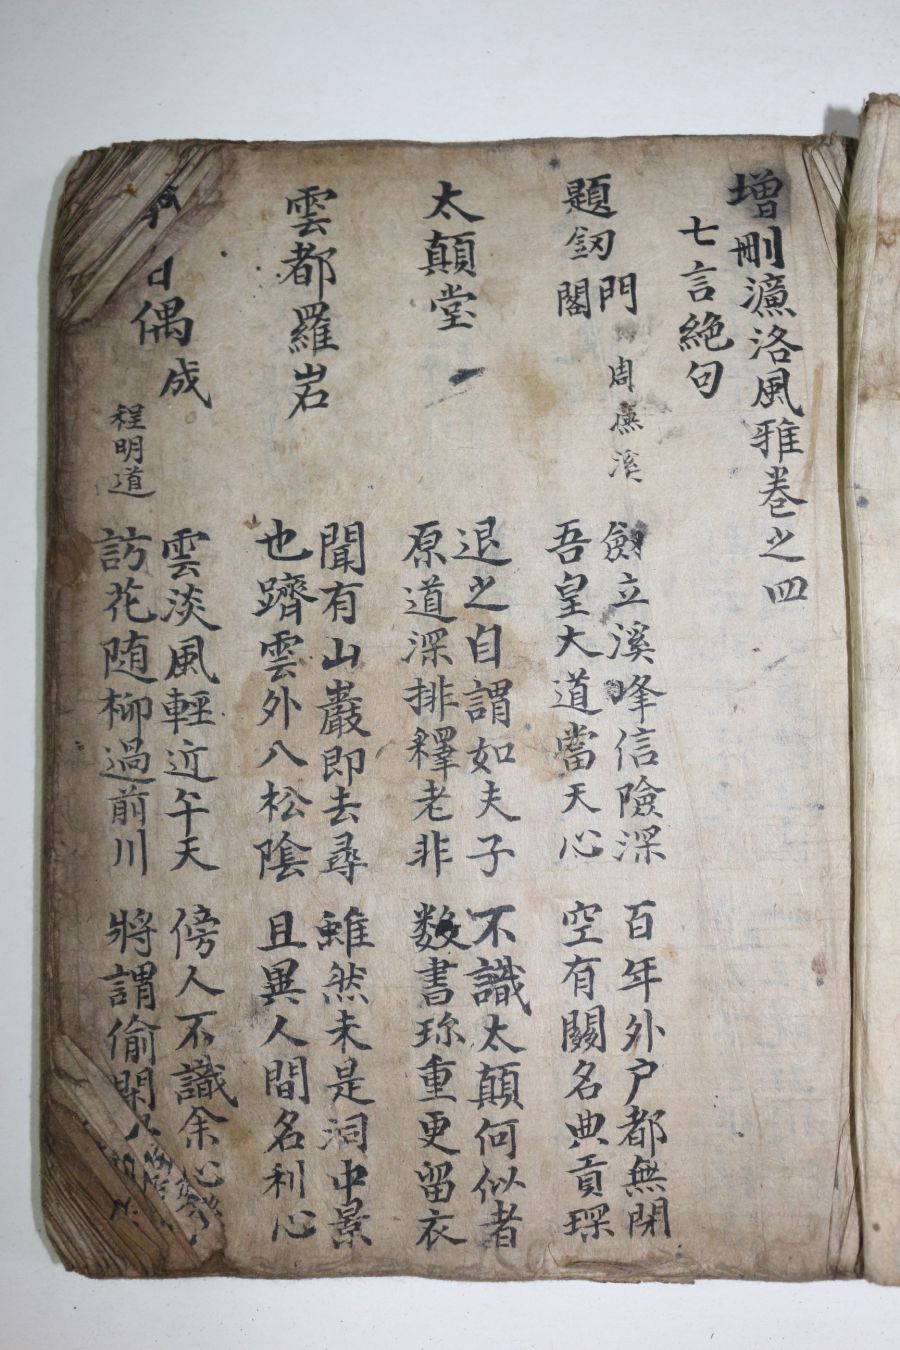 增刪濂洛風雅卷之四
七言絶句
題釼門閣
周濂溪
劍立溪峰信險深
百年外户都無閉
吾皇大道當天心
空有關名典貢琛
太顛堂
退之自謂如夫子
不識太顛何似者
原道深排釋老非
数書珎重更留衣
雲都羅岩
聞有山巖即去尋
雖然未是洞中景
也躋雲外八松陰
且異人間名利心
日偶成
程明道
雲淡風輕近午天
傍人不識余心
訪花随柳過前川
將謂偷閑